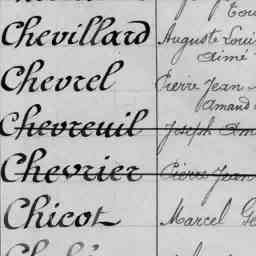 Chevillard Auguste Loui
Aimé
Chevrel Pierre Jean
Amand
Chevreuil Joseph Am
Chevrier Pierre Jean
Chicot Marcel Ge